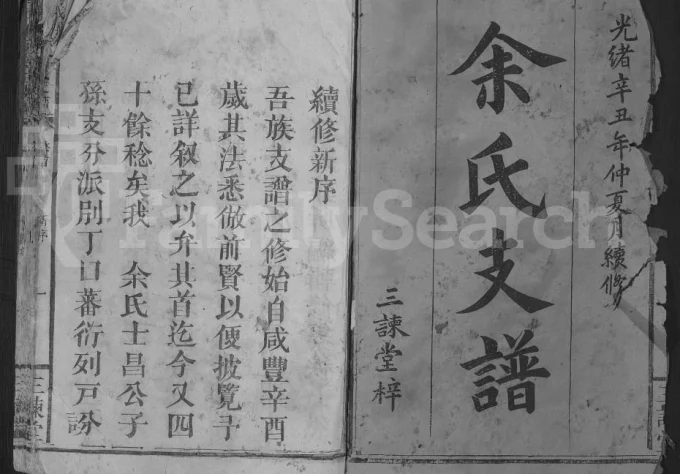 光緒辛丑年仲夏月續修
余氏支譜
三諫堂梓
續修新序
吾族支譜之修始自咸豐辛酉
歲其法悉倣前賢以便披覽予
已詳叙之以弁其首迄今又四
十餘稔矣我 余氏士昌公子
孫支分派別丁口蕃衍列戸𠛼
新序
三諫堂
FamilySearch